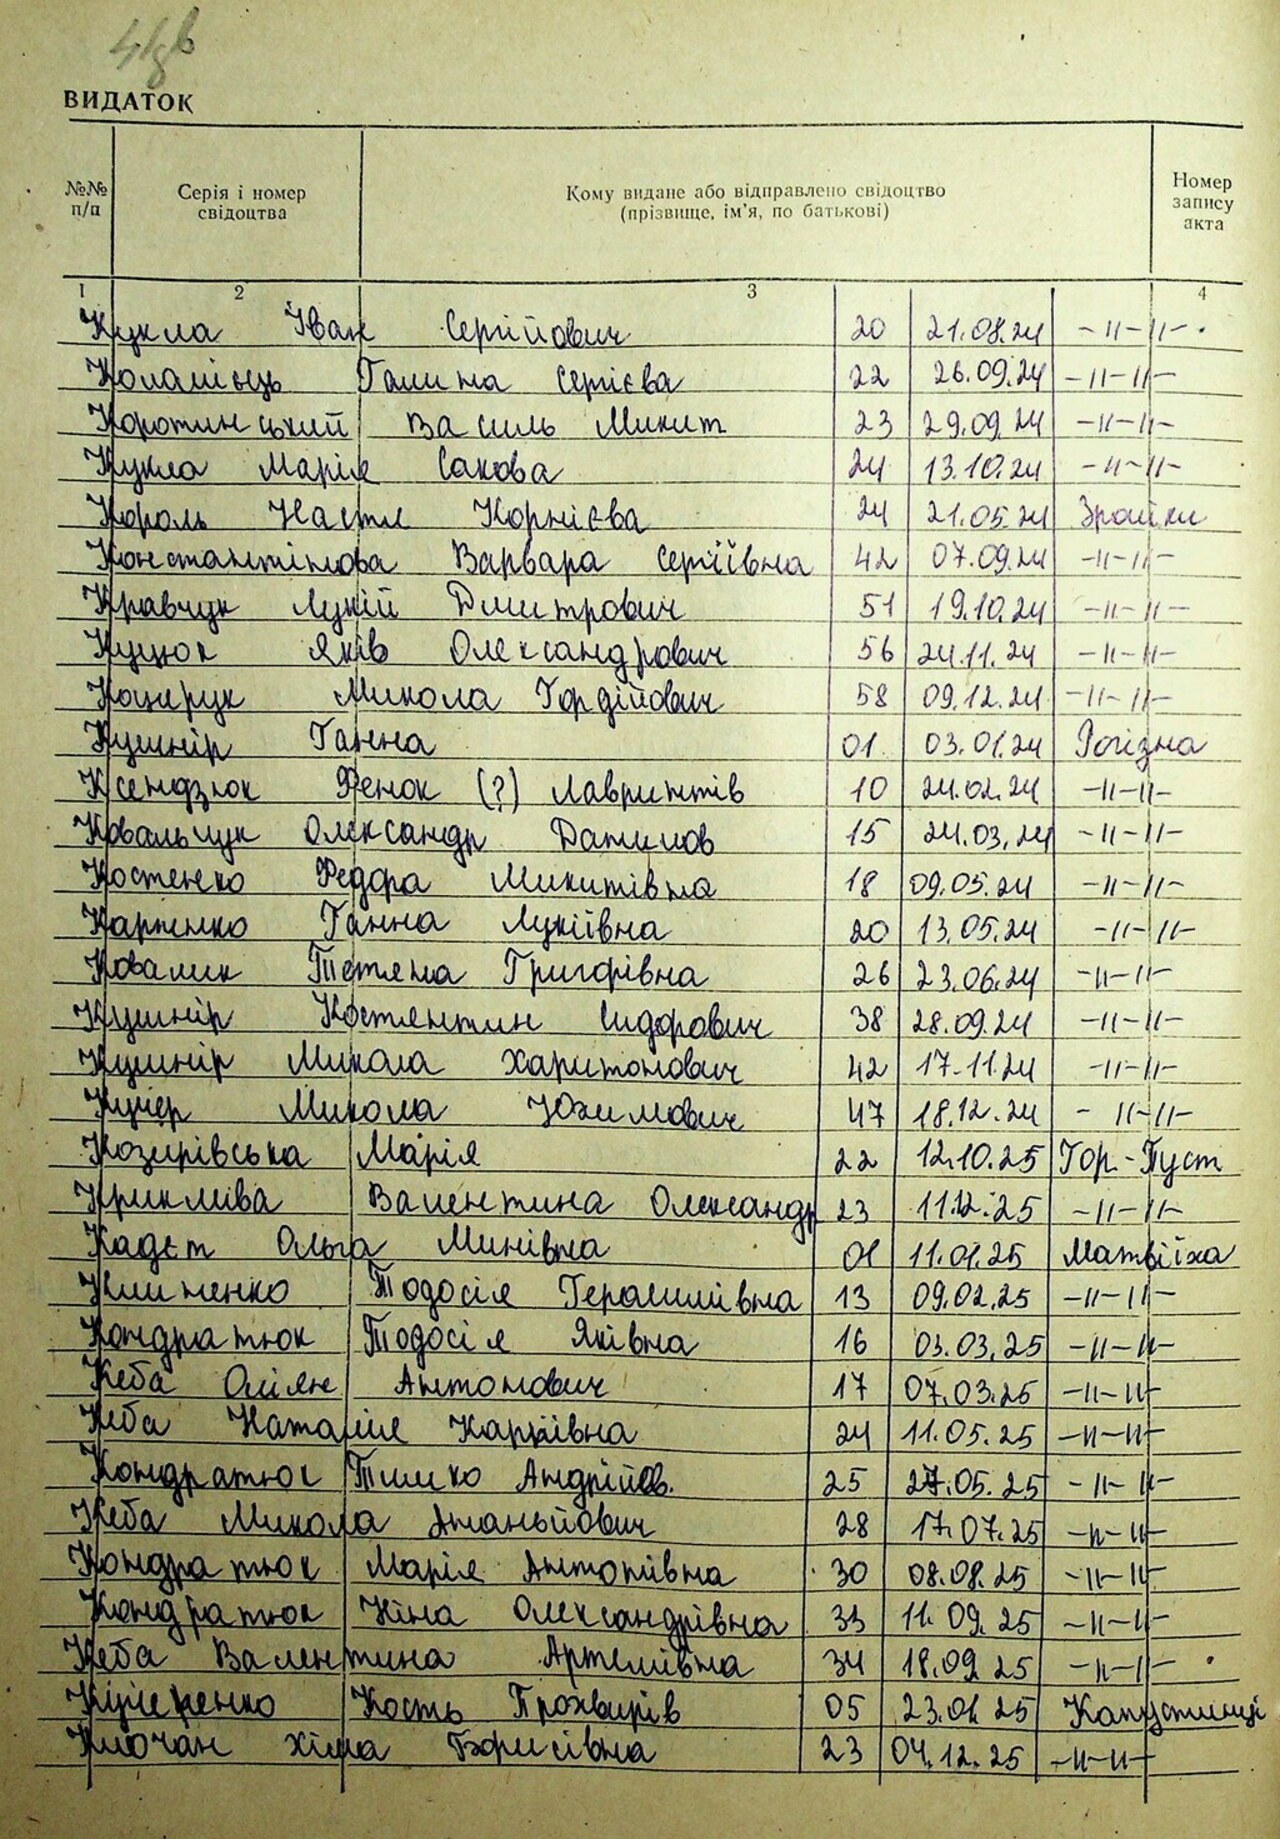 ВИДАТОК
№№ п/п
Серія і номер свідоцтва
Кому видане або відправлено свідоцтво (прізвище, ім'я, по батькові)
Номер запису акта
1 2 3 4
Кукла Іван Сергійович 20 21.08.24 -11-11-
Коламієць Галина Сергієва 22 26.09.24 -11-11-
Коротинський Василь Микит 23 29.09.24 -11-11-
Кукла Марія Сакова 24 13.10.24 -11-11-
Король Настя Корнієва 24 21.05.24 Зрайки
Константінова Варвара Сергіївна 42 07.09.24 -11-11-
Кравчук Лукій Дмитрович 51 19.10.24 -11-11-
Куцюк Яків Олександрович 56 24.11.24 -11-11-
Коцерук Микола Гордійович 58 09.12.24 -11-11-
Кушнір Ганна 01 03.01.24 Рогізна
Ксендзюк Фенок (?) Лаврінтів 10 24.02.24 -11-11-
Ковальчук Олександр Данилов 15 24.03.24 -11-11-
Костенко Федора Микитівна 18 09.05.24 -11-11-
Карпенко Ганна Лукіївна 20 13.05.24 -11-11-
Ковалик Тетяна Григорівна 26 23.06.24 -11-11-
Кушнір Костянтин Сидорович 38 28.09.24 -11-11-
Кушнір Микола Харитонович 42 17.11.24 -11-11-
Кучер Микола Юхимович 47 18.12.24 - 11-11-
Козирівська Марія 22 12.10.25 Гор.-Пуст
Криклива Валентина Олександр 23 11.12.25 -11-11-
Кадєт Ольга Минівна 01 11.01.25 Матвіїха
Клименко Тодосія Герасимівна 13 09.02.25 -11-11-
Кондратюк Тодосія Яківна 16 03.03.25 -11-11-
Кеба Оліян Антонович 17 07.03.25 -11-11-
Кеба Наталія Карпівна 24 11.05.25 -11-11-
Кондратюк Тимко Андрійов. 25 27.05.25 -11-11-
Кеба Микола Ананьйович 28 17.07.25 -11-11-
Кондратюк Марія Антонівна 30 08.08.25 -11-11-
Кондратюк Ніна Олександрівна 33 11.09.25 -11-11-
Кеба Валентина Артемівна 34 18.09.25 -11-11-
Кость Прохвирів 05 23.01.25 Капустинці
Клочан Хіма Борисівна 23 04.12.25 -11-11-